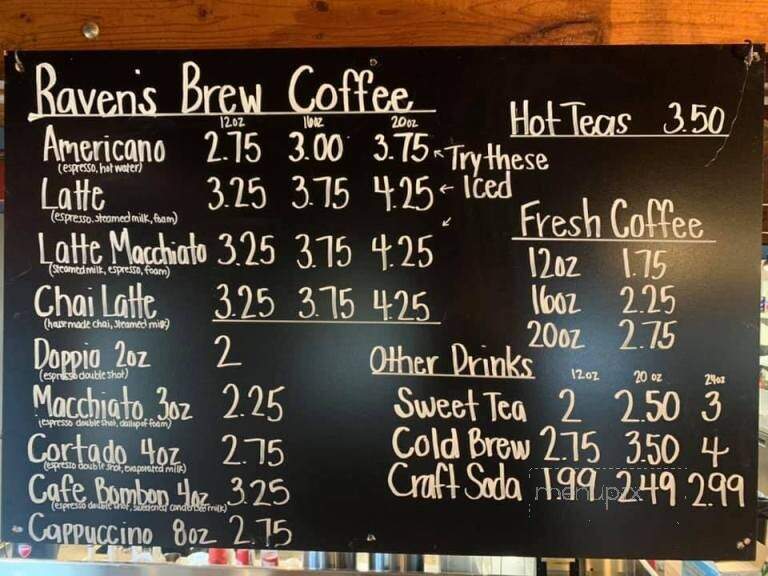 Raven's Brew Coffee
12oz 16oz 20oz
Americano 2.75 3.00 3.75 Try these
(espresso, hot water)
Latte 3.25 3.75 4.25 Iced
(espresso, steamed milk, foam)
Latte Macchiato 3.25 3.75 4.25
(steamed milk, espresso, foam)
Chai Latte 3.25 3.75 4.25
(house made chai, steamed milk)
Doppio 2oz 2
(espresso double shot)
Macchiato 3oz 2.25
(espresso double shot, dollop of foam)
Cortado 4oz 2.75
(espresso double shot, evaporated milk)
Cafe Bombon 4oz 3.25
(espresso double shot, sweetened condensed milk)
Cappuccino 8oz 2.75
Hot Teas 3.50
Fresh Coffee
12oz 1.75
16oz 2.25
20oz 2.75
Other Drinks
12oz 20oz 24oz
Sweet Tea 2 2.50 3
Cold Brew 2.75 3.50 4
Craft Soda 1.99 2.49 2.99
menupix